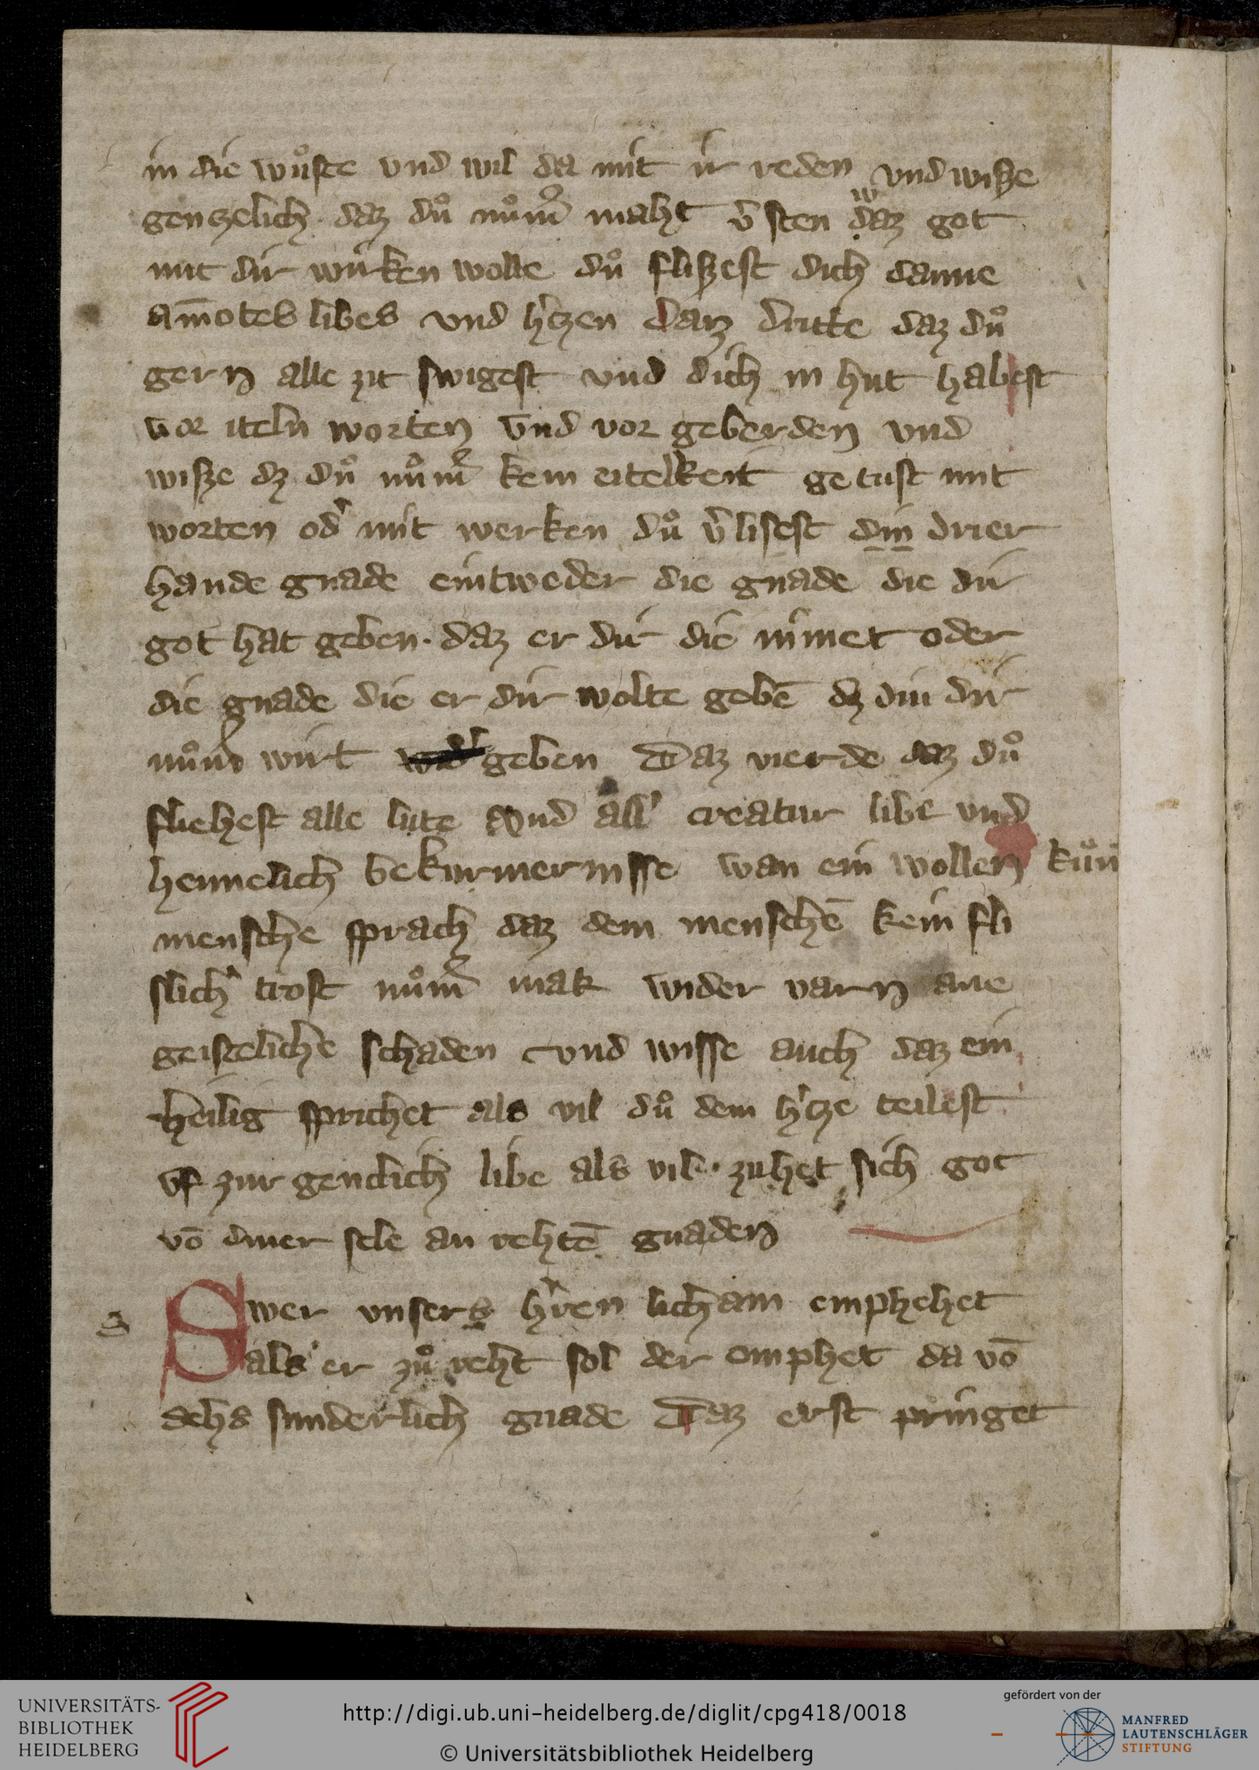 in die wuͦste vnd wil da mit ir reden vnd wisze
gentzelich daz duͦ nuͦm̄ maht v̓sten daz got
mit dir wirken wolle duͦ fliszest dich danne
am̄otes libes vnd h̓tzen Daz dritte daz duͦ
gern alle zit swigest vnd dich in hut habest
vor iteln worten vnd vor geberden vnd
wisze dz duͦ nuͦm̄ kein eitelkeit getust mit
worten od̓ mit werken duͦ v̓lisest din drier
hande gnade eintweder die gnade die dir
got hat geben · daz er dir die nimet oder
die gnade die er dir wolte gebē dz diu dir
nuͦm̄ wirt geben Daz vierde daz duͦ
fliehest alle lute vnd all̓ creatur libe vnd
heimelich bekurmernisse wan ein wollen kuͦn
mensche sprach daz dem menschē kein fli
slich̓ trost nuͦm̄ mak wider varn ane
geistliche schaden vnd wisse auch daz ein
heilig sprichet als vil duͦ dem h̓tze teilest
vf zur genclich libe als vil · zuhet sich got
vō diner sele an rehtē gnaden
Swer vnsers h̓ren licham emphehet
als er zuͦ reht sol der emphet da vō
sehs sunderlich gnade Daz erst pringet
UNIVERSITÄTS-
BIBLIOTHEK
HEIDELBERG
http://digi.ub.uni-heidelberg.de/diglit/cpg418/0018
© Universitätsbibliothek Heidelberg
gefördert von der
MANFRED
LAUTENSCHLÄGER
STIFTUNG